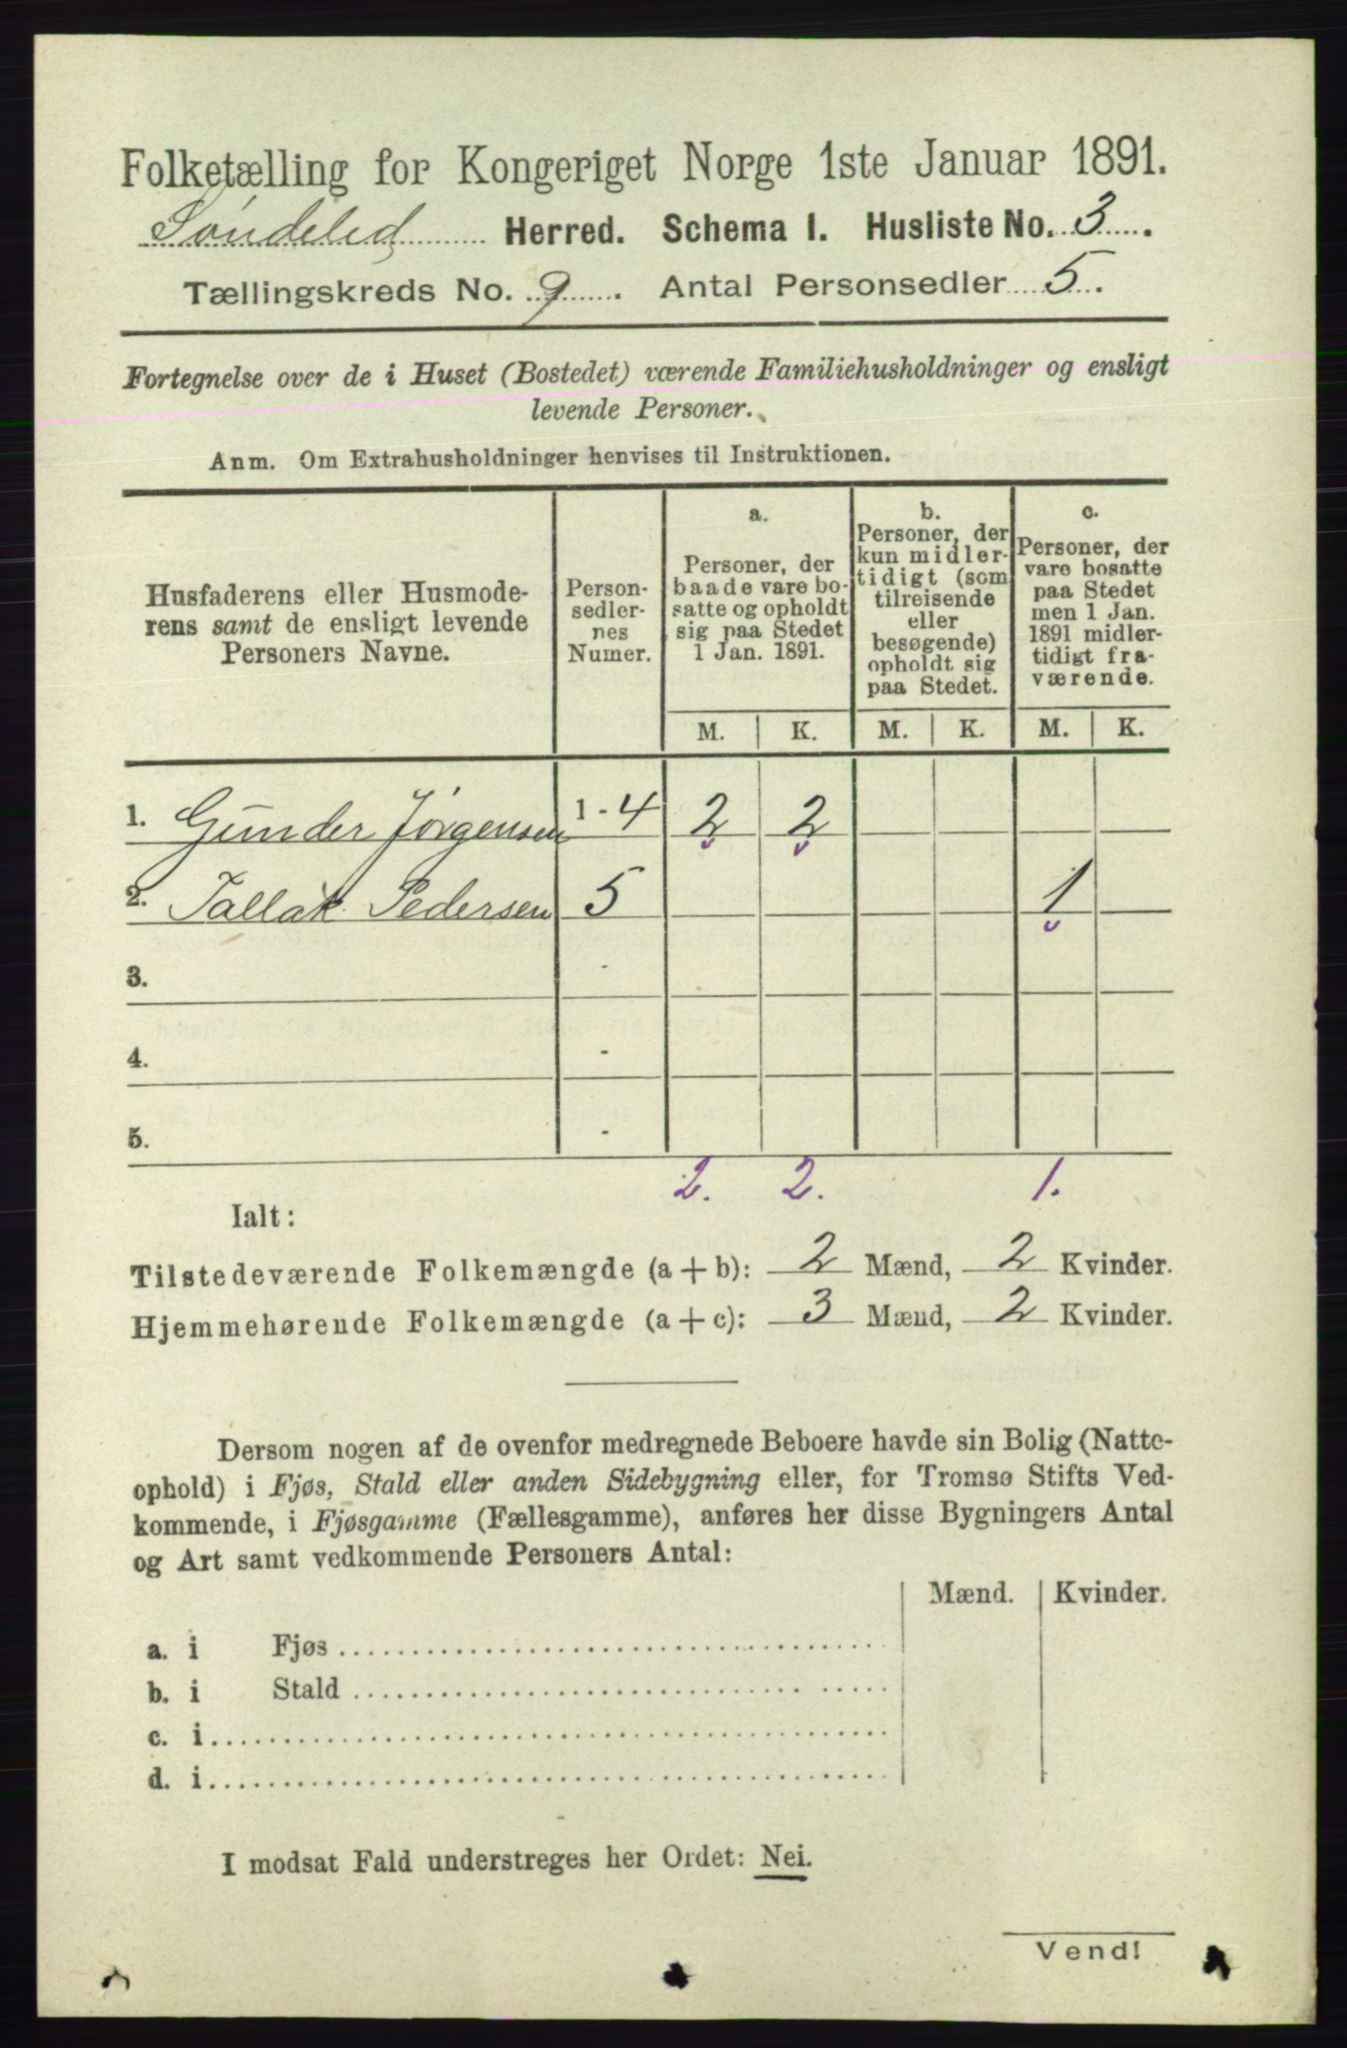 Folketælling for Kongeriget Norge 1ste Januar 1891.
Søndeled Herred. Schema I. Husliste No. 3.
Tællingskreds No. 9. Antal Personsedler 5.
Fortegnelse over de i Huset (Bostedet) værende Familiehusholdninger og ensligt
levende Personer.
Anm. Om Extrahusholdninger henvises til Instruktionen.
Husfaderens eller Husmode-
rens samt de ensligt levende
Personers Navne.
Person-
sedler-
nes
Numer.
a.
Personer, der
baade vare bo-
satte og opholdt
sig paa Stedet
1 Jan. 1891.
b.
Personer, der
kun midler-
tidigt (som
tilreisende
eller
besøgende)
opholdt sig
paa Stedet.
c.
Personer, der
vare bosatte
paa Stedet
men 1 Jan.
1891 midler-
tidigt fra-
værende.
M. K. M. K. M. K.
1. Gunder Jörgensen 1-4 2 2
2. Tallak Pedersen 5 1
3. -
4. -
5. -
2. 2. 1.
Ialt:
Tilstedeværende Folkemængde (a + b): 2 Mænd, 2 Kvinder.
Hjemmehørende Folkemængde (a + c): 3 Mænd, 2 Kvinder.
Dersom nogen af de ovenfor medregnede Beboere havde sin Bolig (Natte-
ophold) i Fjøs, Stald eller anden Sidebygning eller, for Tromsø Stifts Ved-
kommende, i Fjøsgamme (Fællesgamme), anføres her disse Bygningers Antal
og Art samt vedkommende Personers Antal:
Mænd. Kvinder.
a. i Fjøs
b. i Stald
c. i
d. i
I modsat Fald understreges her Ordet: Nei.
Vend!